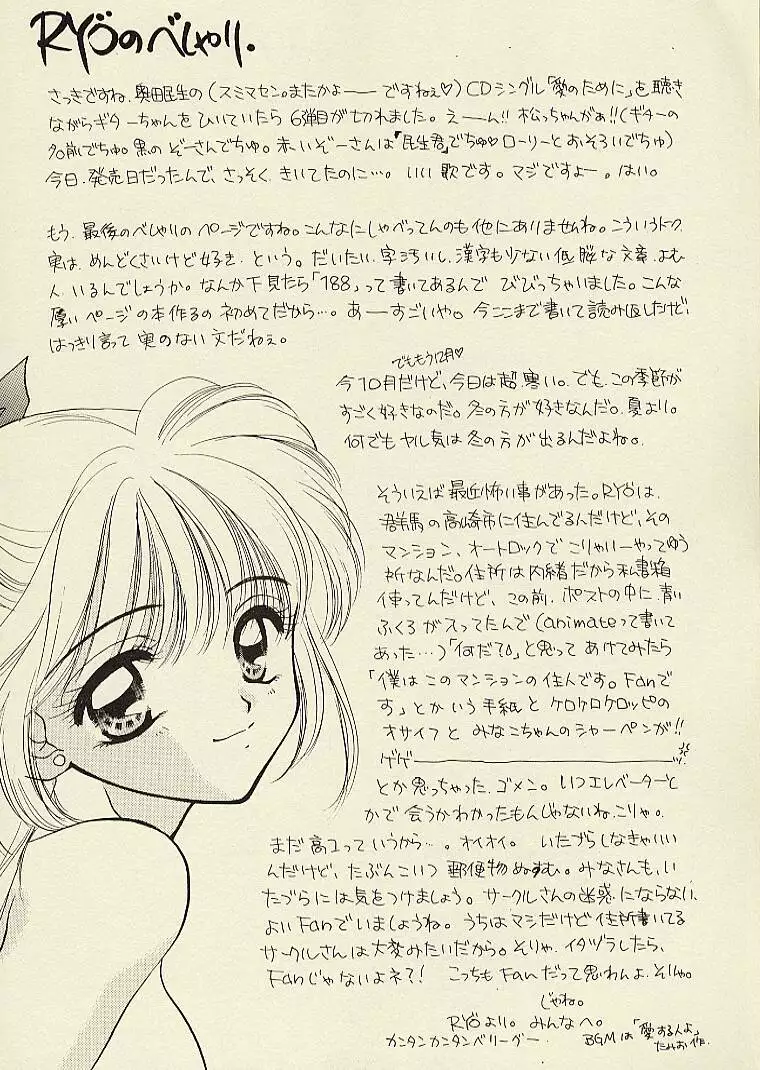 RYÖのべしゃり.
さっきですね、奥田民生の(スミマセン。またかよ――ですねぇ♡)CDシングル「愛のために」を聴き
ながらギターちゃんをひいていたら6弾目が切れました。え――ん!!松っちゃんがぁ!!(ギターの
名前でちゅ。黒のぞーさんでちゅ。赤いぞーさんは「民生君」でちゅ♡ローリーとおそろいでちゅ)
今日、発売日だったんで、さっそく、きいてたのに…。いい歌です。マジですよー。はい。
もう、最後のべしゃりのページですね。こんなにしゃべってんのも他にありませんね。こういうトーク
実は、めんどくさいけど好き、という。だいたい、字汚いし、漢字も少ない低脳な文章、よむ
人、いるんでしょうか。なんか下見たら「188」って書いてあるんで びびっちゃいました。こんな
厚いページの本作るの初めてだから…。あ――すごいや。今ここまで書いて読み返したけど、
はっきり言って実のない文だねぇ。
でももう12月♡
今10月だけど、今日は超寒い。でも、この季節が
すごく好きなのだ。冬の方が好きなんだ。夏より。
何でもヤル気は冬の方が出るんだよね。
そういえば最近怖い事があった。RYÖは、
群馬の高崎市に住んでるんだけど、その
マンション、オートロックでこりゃいーやってゆう
所なんだ。住所は内緒だから私書箱
使ってんだけど、この前、ポストの中に青い
ふくろが入ってたんで(animateって書いて
あった…)「何だ?」と思ってあけてみたら
「僕はこのマンションの住人です。Fanで
す」とかいう手紙とケロケロケロッピの
オサイフとみなこちゃんのシャーペンが!!
ゲゲ――
とか思っちゃった、ゴメン。いつエレベーターと
かで会うかわかったもんじゃないね、こりゃ。
まだ高1っていうから…。オイオイ。いたづらしなきゃいい
んだけど、たぶんこいつ郵便物ぬすむ。みなさんも、い
たづらには気をつけましょう。サークルさんの迷惑にならない、
よいFanでいましょうね。うちはマシだけど住所書いてる
サークルさんは大変みたいだから。そりゃ、イタヅラしたら、
Fanじゃないよネ?! こっちもFanだって思わんよ、そりゃ。
じゃね。
RYÖより。みんなへ。
カンタンカンタンベリーグー.
BGMは「愛する人よ」
たみお作.